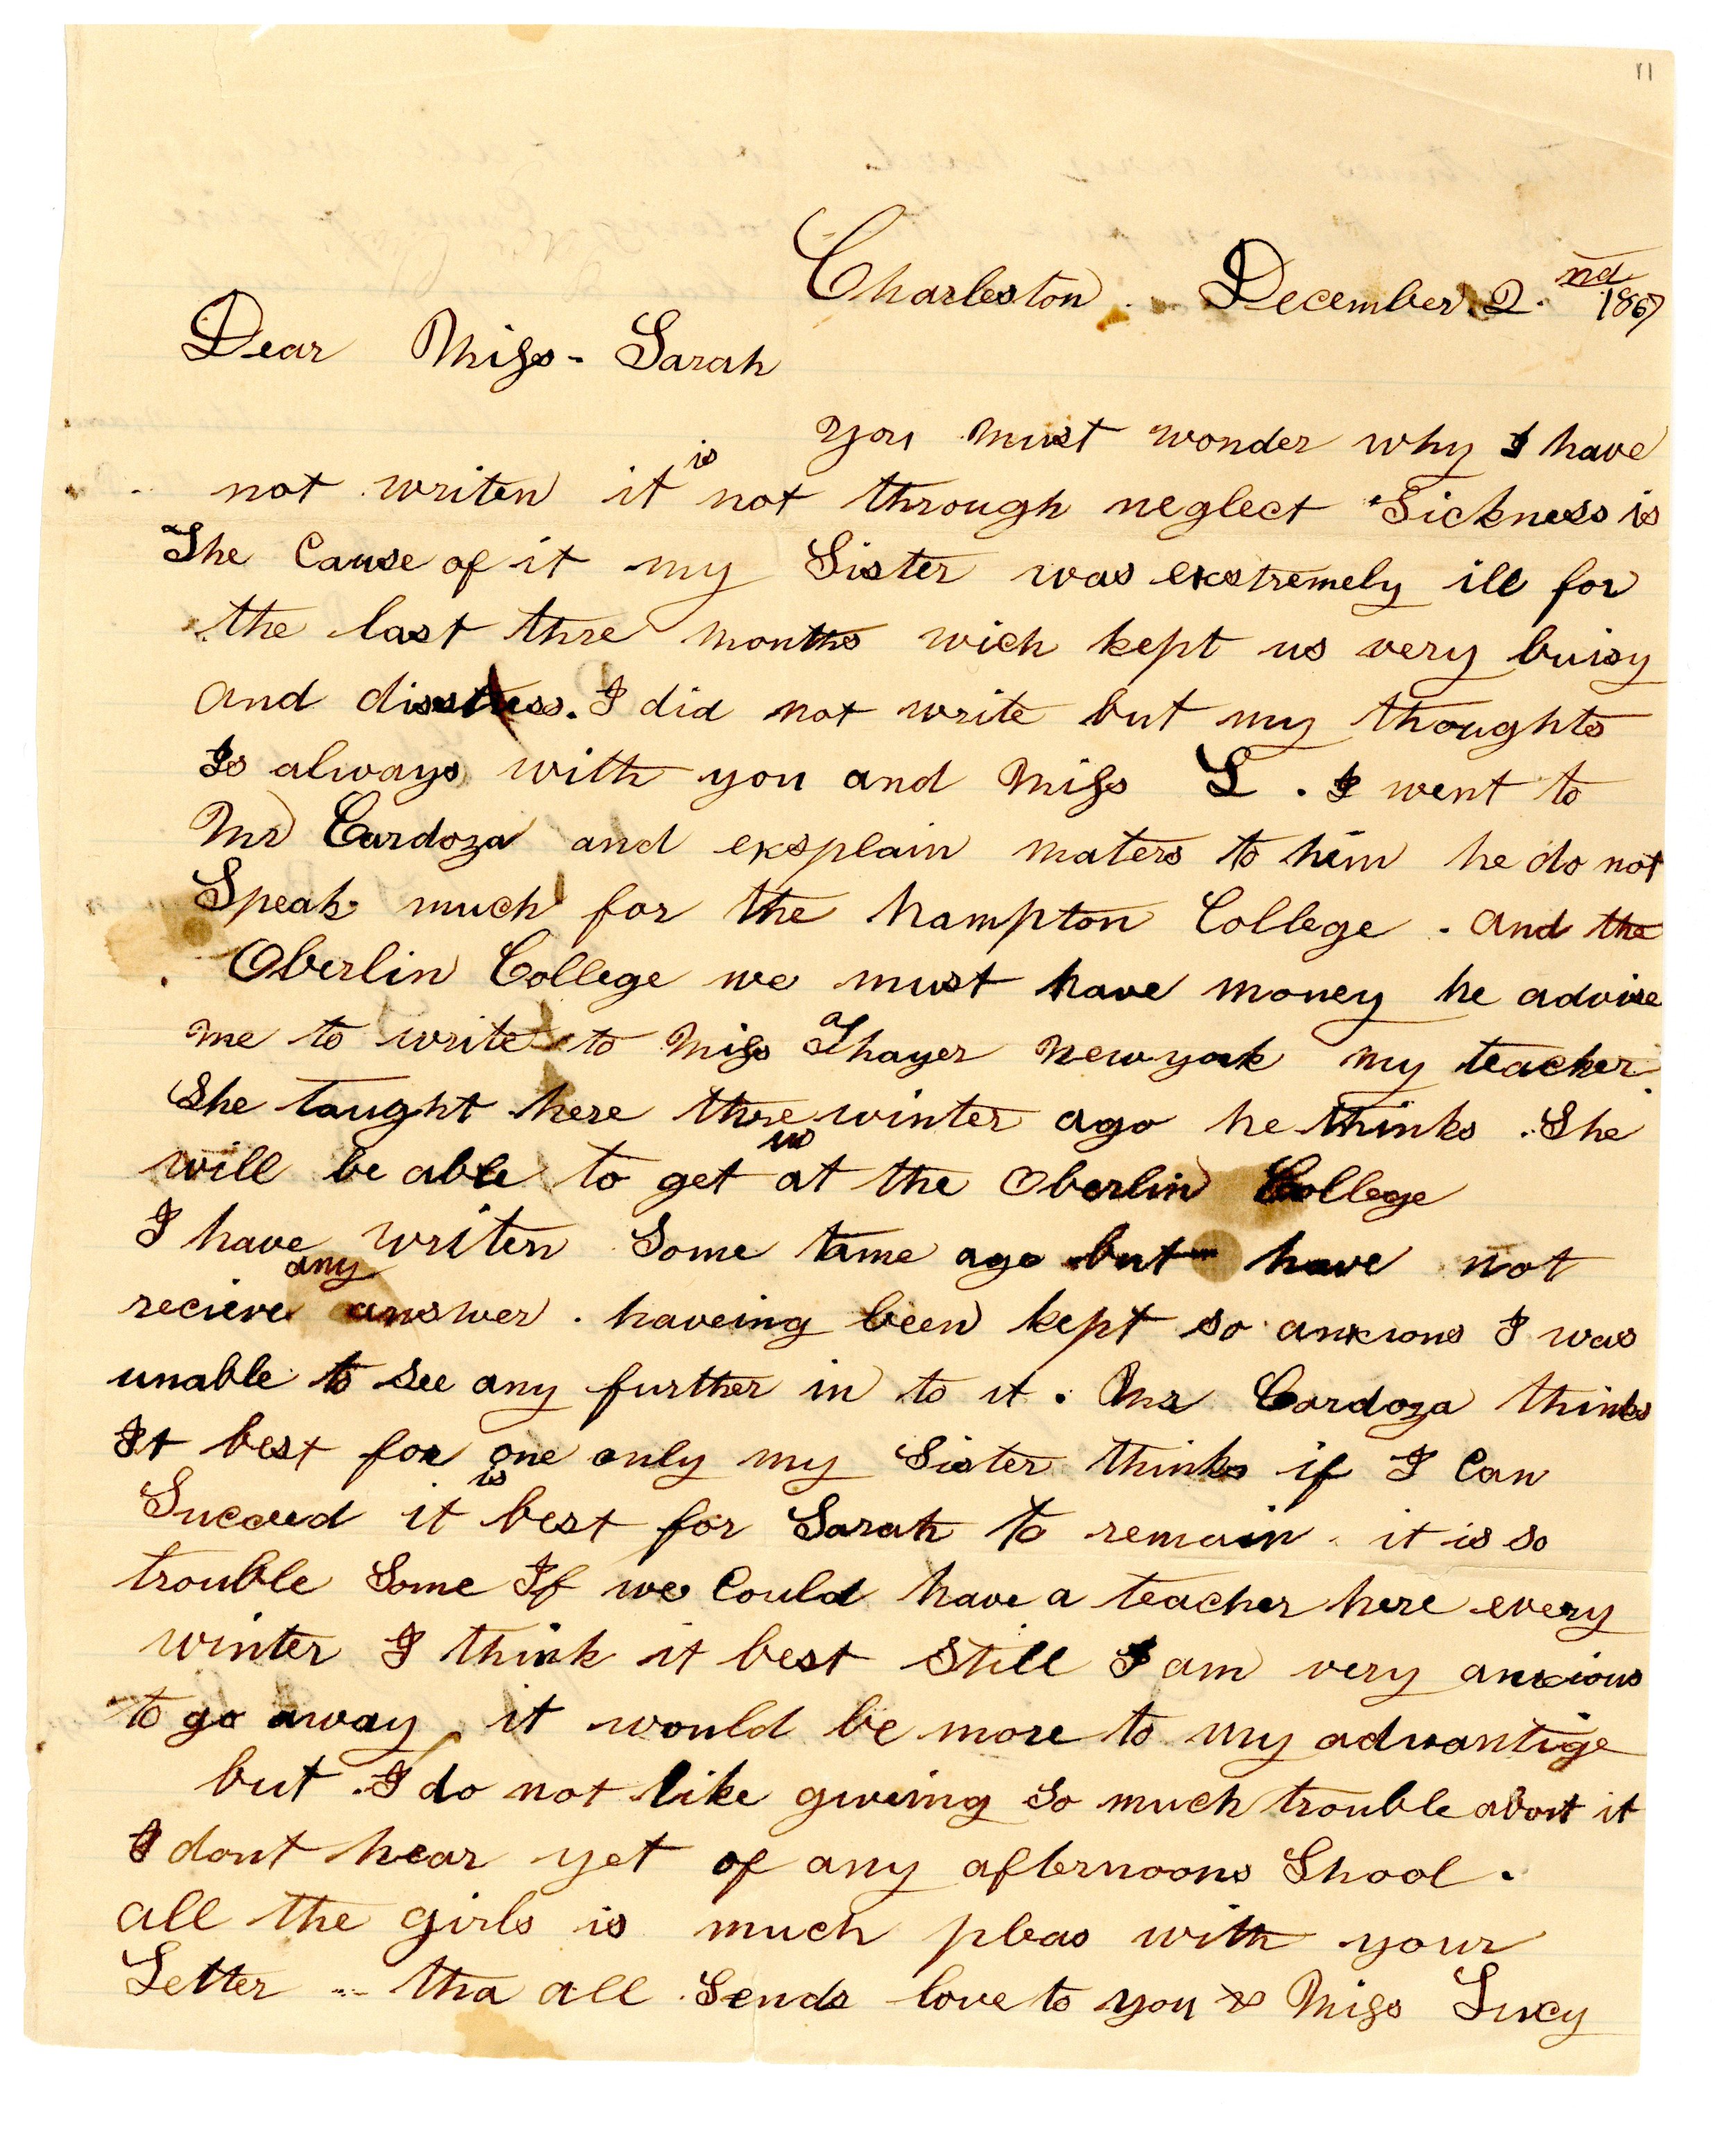 11
Charleston. December. 2. nd 1867
Dear Miss - Sarah
you must wonder why I have
not writen it is not through neglect Sickness is
The Cause of it my Sister was exstremely ill for
the last thre months wich kept us very buisy
and disstress. I did not write but my thoughts
Is always with you and Miss L. I went to
Mr Cardoza and exsplain maters to him he do not
Speak much for the hampton College. and the
Oberlin College we must have money he advise
me to write to Miss a Thayer newyork my teacher.
She taught here thre winter ago he thinks. She
will be able to get us at the Oberlin College
I have writen Some time ago but have not
recieve any answer. haveing been kept so anxious I was
unable to See any further in to it. Mr Cardoza thinks
It best for one only my Sister thinks if I Can
Succeed it is best for Sarah to remain. it is so
trouble Some If we Could have a teacher here every
winter I think it best Still I am very anxious
to go away it would be more to my advantige
but. I do not like giveing So much trouble about it
I dont hear yet of any afternoons Shool.
all the girls is much pleas with your
Letter -- tha all Sends love to you & Miss Lucy